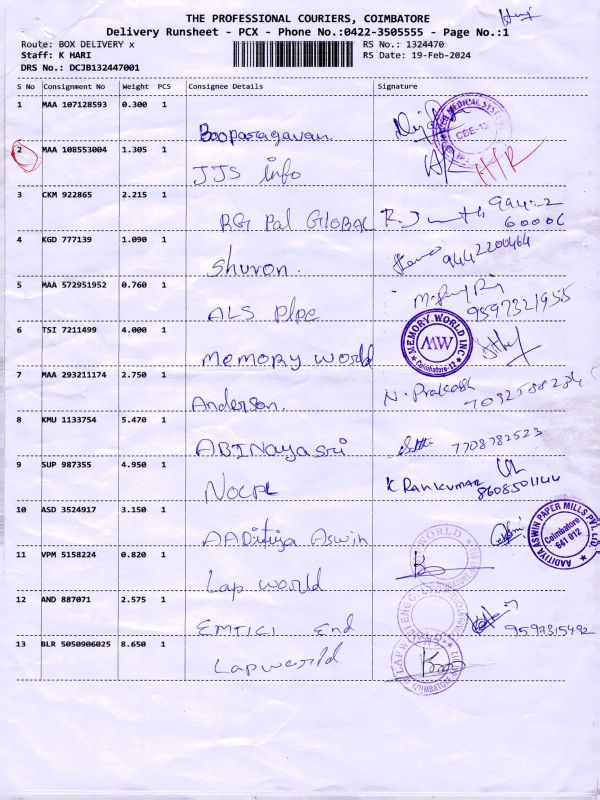 THE PROFESSIONAL COURIERS, COIMBATORE
Delivery Runsheet - PCX - Phone No.:0422-3505555 - Page No.:1
Route: BOX DELIVERY x
RS No.: 1324470
Staff: K HARI
RS Date: 19-Feb-2024
DRS No.: DCJB132447001
S No Consignment No Weight PCS Consignee Details Signature
1 MAA 107128593 0.300 1
Booparagavan.
MEDICAL SYST
CBE-12
2 MAA 108553004 1.305 1
JJS info
3 CKM 922865 2.215 1
RGI Pal GLOBAL
4 KGD 777139 1.090 1
Shuron.
9442200464
5 MAA 572951952 0.760 1
ALS Plpe
9597321955
6 TSI 7211499 4.000 1
MEMORY WORLD
MEMORY WORLD INC
MW
Coimbatore-12
7 MAA 293211174 2.750 1
Anderson.
N. Prakash
8 KMU 1133754 5.470 1
ABINayasri
7708782523
9 SUP 987355 4.950 1
NOCPL
K RAMKUMAR
8608501144
10 ASD 3524917 3.150 1
AADitiya Aswin
AADITIYA ASWIN PAPER MILLS PVT. LTD
Coimbatore
641 012
11 VPM 5158224 0.820 1
Lap world
WORLD
12 AND 887071 2.575 1
EMTICI End
9597315492
13 BLR 5050906025 8.650 1
Lapworld
LAP WORLD
COIMBATORE